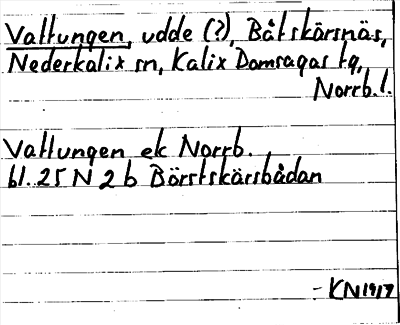 Vallungen, udde (?), Båtskärsnäs,
Nederkalix sn, Kalix Domsagas tg,
Norrb. l.
Vallungen ek Norrb.
bl. 25 N 2 b Börstskärsbådan
- KN 1917